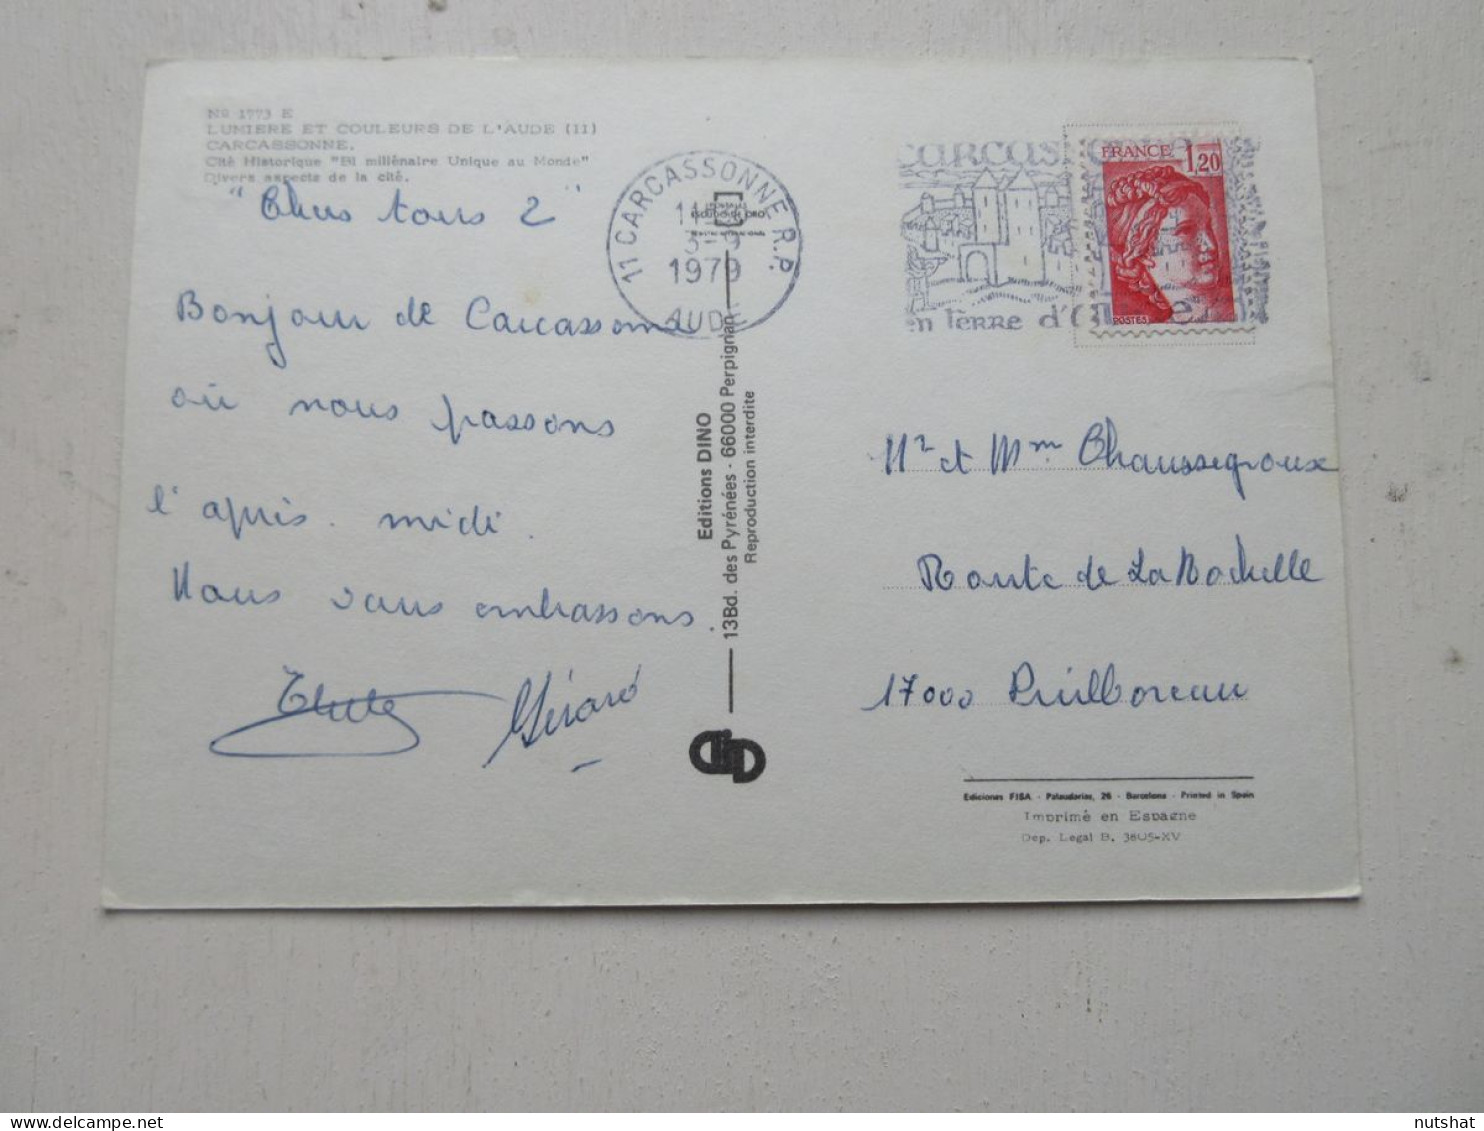 No 1773 E
LUMIERE ET COULEURS DE L'AUDE (II)
CARCASSONNE.
Cité Historique "Bi millénaire Unique au Monde"
Divers aspects de la cité.
" tous 2 "
Bonjour de Carcassonne
où nous passons
l'après-midi.
Nous vous embrassons.
Gérard
11 CARCASSONNE R.P.
11
3-9
1979
AUDE
ESCUDO DE ORO
Editions DINO
13Bd. des Pyrénées - 66000 Perpignan
Reproduction interdite
CARCAS
en TERRE d'
FRANCE 1,20
POSTES
Mr et Mme Chaussegroux
Route de La Rochelle
17000 Puilboreau
Ediciones FISA - Palaudarias, 26 - Barcelona - Printed in Spain
Imprimé en Espagne
Dep. Legal B. 3805-XV
nutshat
delcampe.net